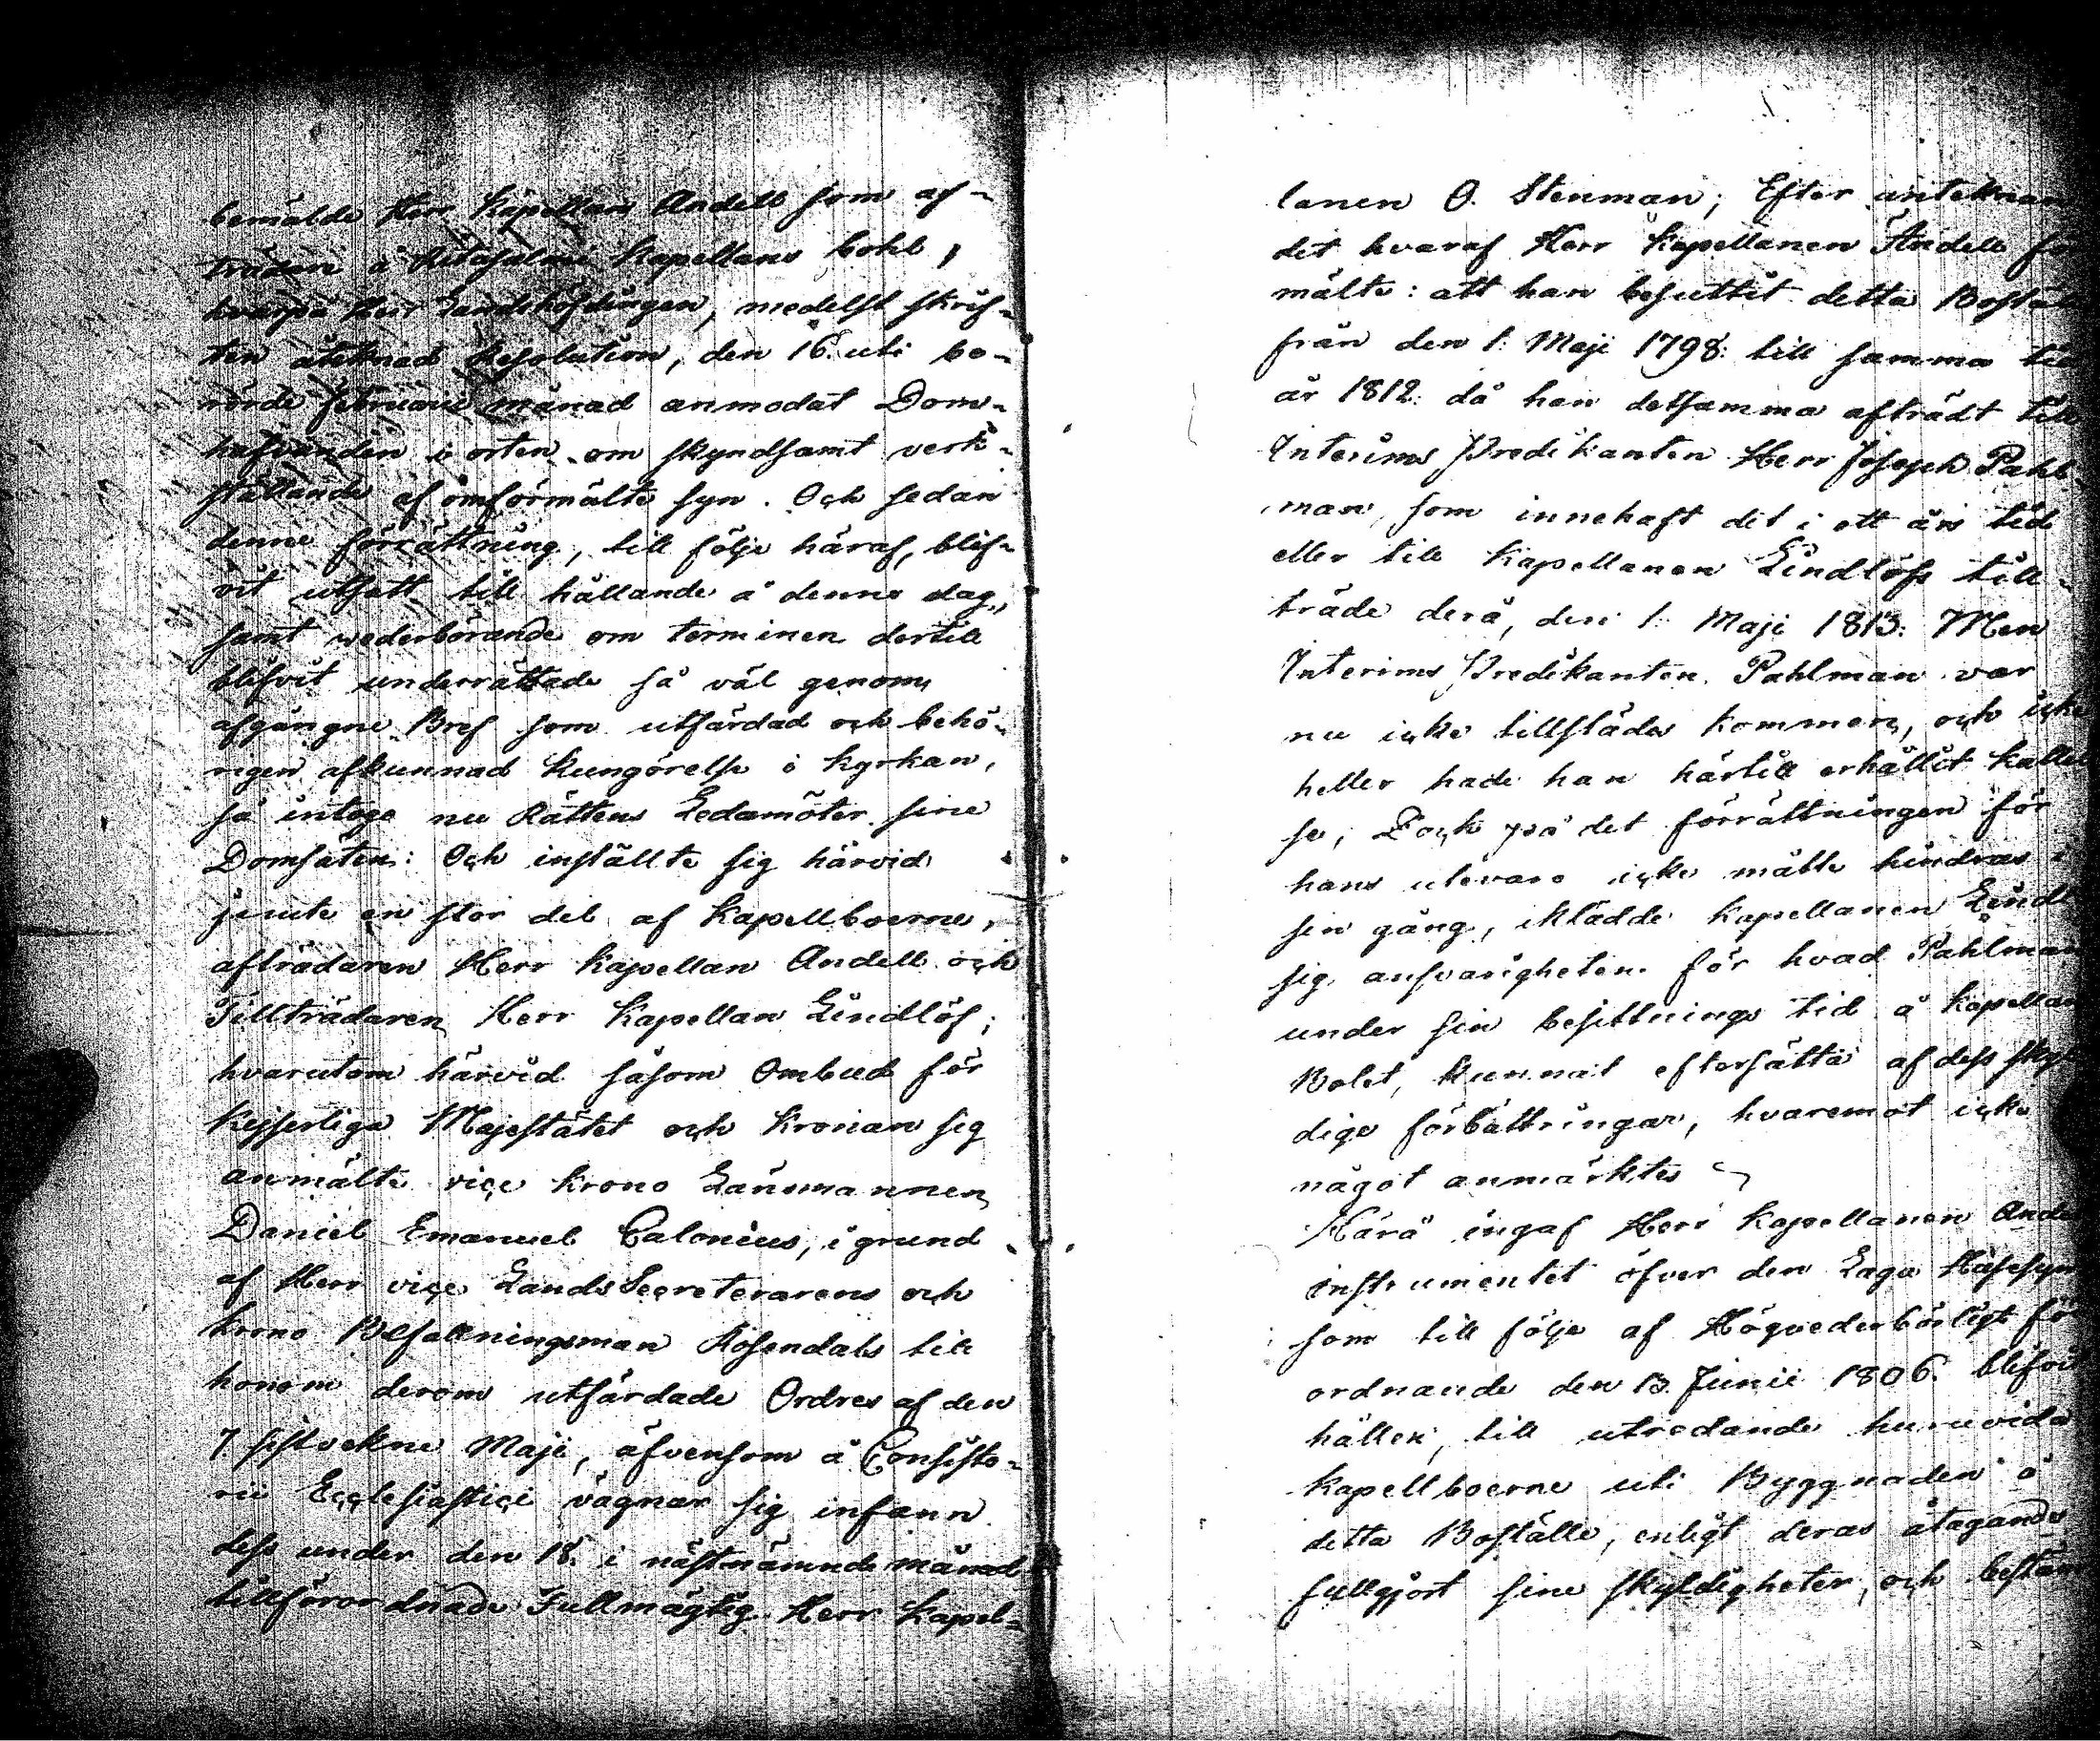 bemälde Herr Kapellan Andell som af-
trädare å Ristijalmi Kapellans bohl,
hvarpå Herr Landshöfdingen, medelst skrif-
ten åteknad Resolution, den 16. uti be-
rörde Februarii månad anmodat Dom-
hafvanden i orten om skyndsamt verk-
ställande af omförmälte syn. Och sedan
denne förrättning, till följe häraf, blif-
vit utsatt till hållande å denne dag,
samt wederbörande om terminen dertill
blifvit underrättade så väl genom
afgångne Bref som utfärdad och behö-
rigen afkunnad kungörelse i kyrkan,
så intoge nu Rättens Ledamöter sine
Domsäten: Och inställte sig härvid
jemte en stor del af Kapellboerne,
afträdaren Herr Kapellan Andell och
Tillträdaren Herr Kapellan Lindlöf;
hvarutom härvid såsom Ombud för
Kejserliga Majestätet och Kronan sig
anmälte vice Krono Länsmannen
Daniel Emanuel Calonius, i grund
af Herr vice Lands Secreterarens och
Krono Befallningsman Rosendals till
honom derom utfärdade Ordres af den
7 sistvekne Maji, äfvensom å Consisto-
rii Ecclesiastici vägnar sig infann
dess under den 18. i nästnämnde månad
tillförordnade Fullmägtig Herr Kapel-
lanen O. Stenman; Efter anteknan
det hvaraf Herr Kapellanen Andell för
mälte: att han besuttit detta Boställe
från den 1. Maji 1798. till samma tid
år 1812. då han detsamma afträdt till
Interims Predikanten Herr Joseph Pahl-
man, som innehaft det i ett års tid
eller till Kapellanen Lindlöfs till-
träde derå, den 1. Maji 1813. Men
Interims Predikanten Pahlman var
nu icke tillstädes kommen, och icke
heller hade han härtill erhållit kallel
se; Dock på det förrättningen för
hans utevaro icke måtte hindras i
sin gång, iklädde Kapellanen Lindl
sig ansvarigheten för hvad Pahlman
under sin besittnings tid å Kapellans
Bolet, kunnat eftersätta af dess skyl
dige förbättringar, hvaremot icke
något anmärktes
Härå ingaf Herr Kapellanen Andell
instrumentet öfver den Laga Husesyn
som till följe af Högvederbörligt för
ordnande den 13. Junii 1806. blifvit
hållen, till utredande huruvida
Kapellboerne uti Byggnaden å
detta Boställe, enligt deras åtagande
fullgjort sine skyldigheter, och bestäm